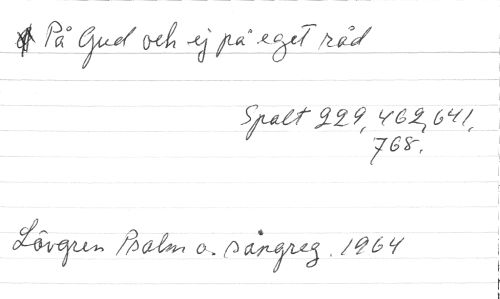 På Gud och ej på eget råd
Spalt 229, 462, 641,
768.
Lövgren Psalm o. sångreg. 1964